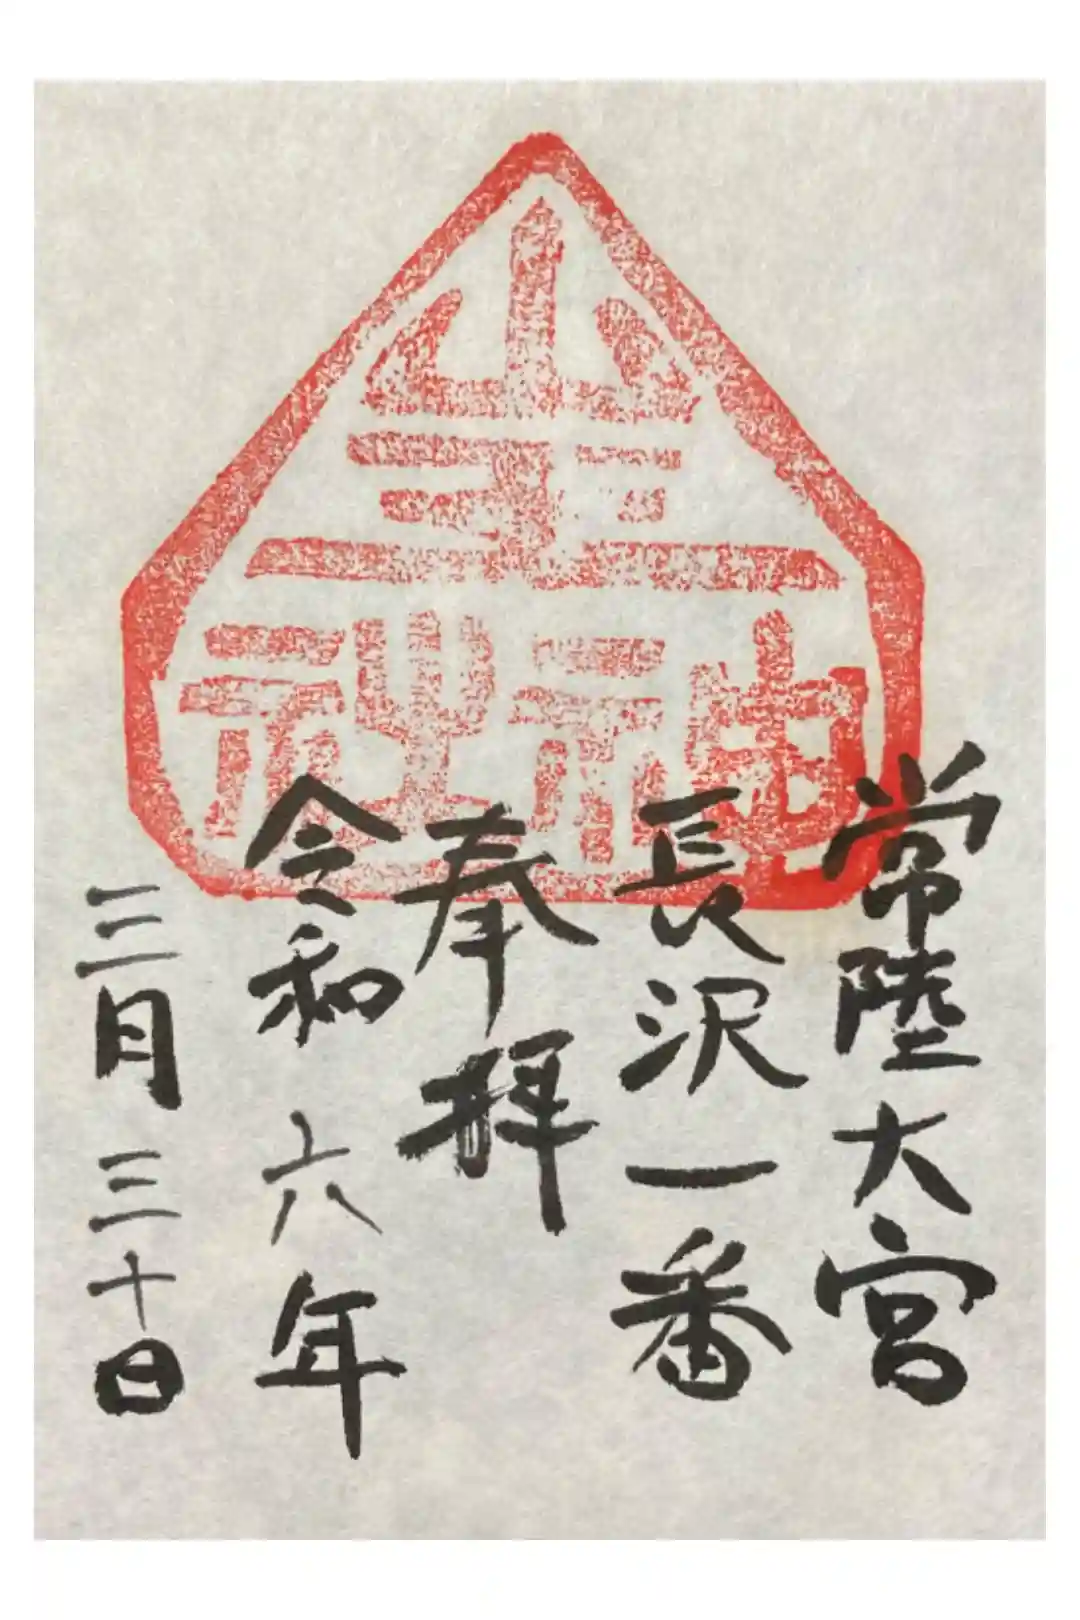 神社
常陸大宮
長沢一番
奉拝
令和六年
三月三十日